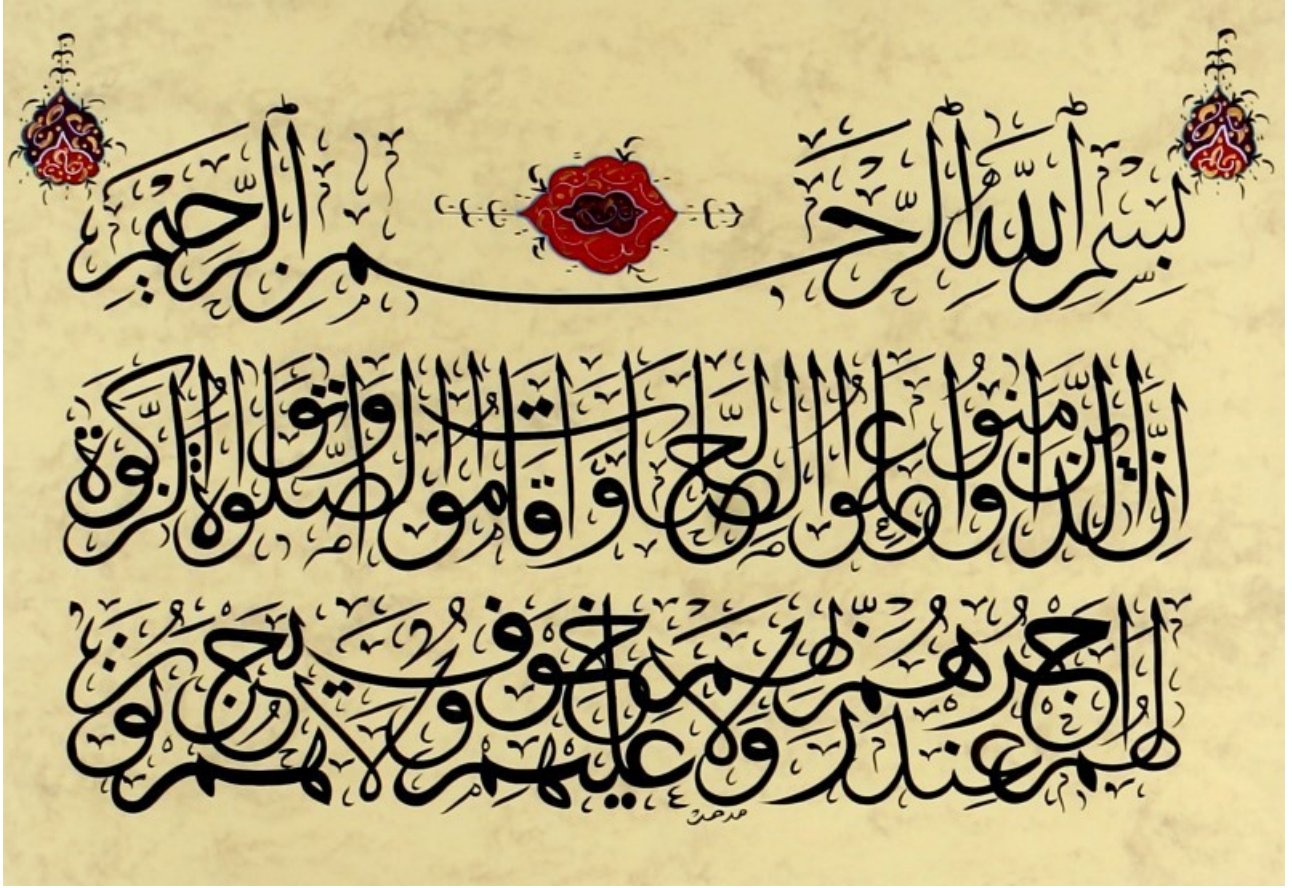 بِسْمِ اللّٰهِ الرَّحْمٰنِ الرَّحِيمِ
اِنَّ الَّذِينَ اٰمَنُوا وَعَمِلُوا الصَّالِحَاتِ وَاَقَامُوا الصَّلٰوةَ وَاٰتَوُا الزَّكٰوةَ
لَهُمْ اَجْرُهُمْ عِنْدَ رَبِّهِمْ وَلَا خَوْفٌ عَلَيْهِمْ وَلَا هُمْ يَحْزَنُونَ